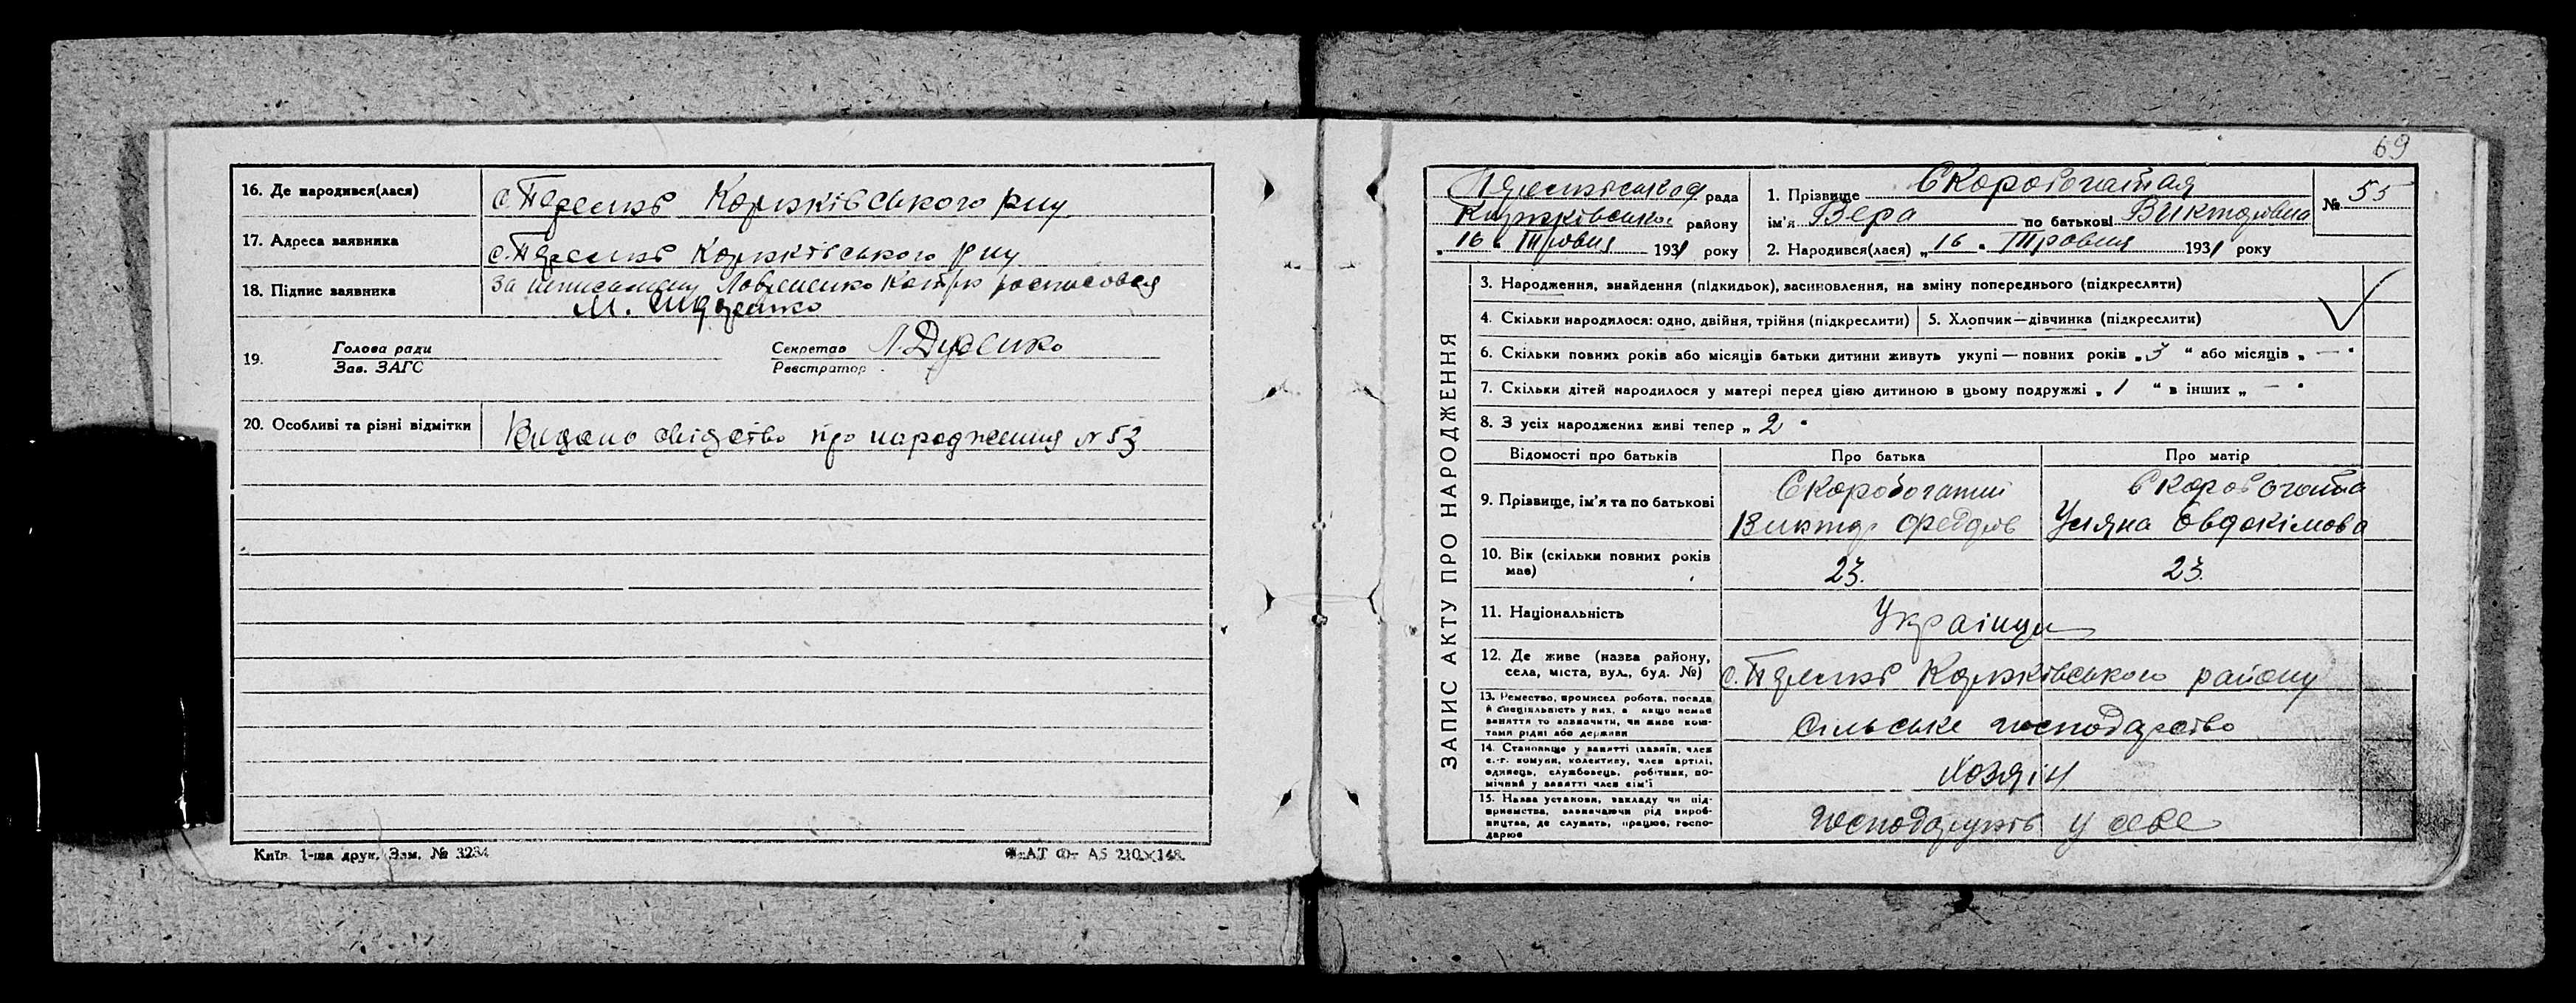 16. Де народився(лася)
17. Адреса заявника
18. Підпис заявника
М.
19. Голова ради
Зав. ЗАГС
Секретар Л. Дуденко
Реєстратор
20. Особливі та різні відмітки Видано свідоство про народження № 53
Київ, 1-ша друк. Зам. № 3234
Ф-АТ Ф- А5 210×148.
69
рада
району
„16„ Травня 1931 року
1. Прізвище Скоробогатая
ім'я Вера по батькові Викторівна
№ 55
2. Народився(лася) „16„ Травня 1931 року
ЗАПИС АКТУ ПРО НАРОДЖЕННЯ
3. Народження, знайдення (підкидьок), засиновлення, на зміну попереднього (підкреслити)
4. Скільки народилося: одно, двійня, трійня (підкреслити)
5. Хлопчик—дівчинка (підкреслити)
6. Скільки повних років або місяців батьки дитини живуть укупі — повних років „3“ або місяців „—“
7. Скільки дітей народилося у матері перед цією дитиною в цьому подружжі „1“ в інших „—“
8. З усіх народжених живі тепер „2“
Відомості про батьків
Про батька
Про матір
9. Прізвище, ім'я та по батькові
Скоробогатий
Виктор Федоров
Скоробогата
Уляна Овдокімова
10. Вік (скільки повних років має)
23.
23.
11. Національність
Українци
12. Де живе (назва району, села, міста, вул., буд. №)
району
13. Ремество, промисел робота, посада й спеціяльність у них, а якщо немає заняття то зазначити, чи живе коштами рідні або держави
Сільське господарство
14. Становище у занятті (хазяїн, член с.-г. комуни, колективу, член артілі, одинець, службовець, робітник, помічний у занятті член сім'ї
Хозяін
15. Назва установи, закладу чи підприємства, зазначаючи рід виробництва, де служить, працює, господарює
у себе